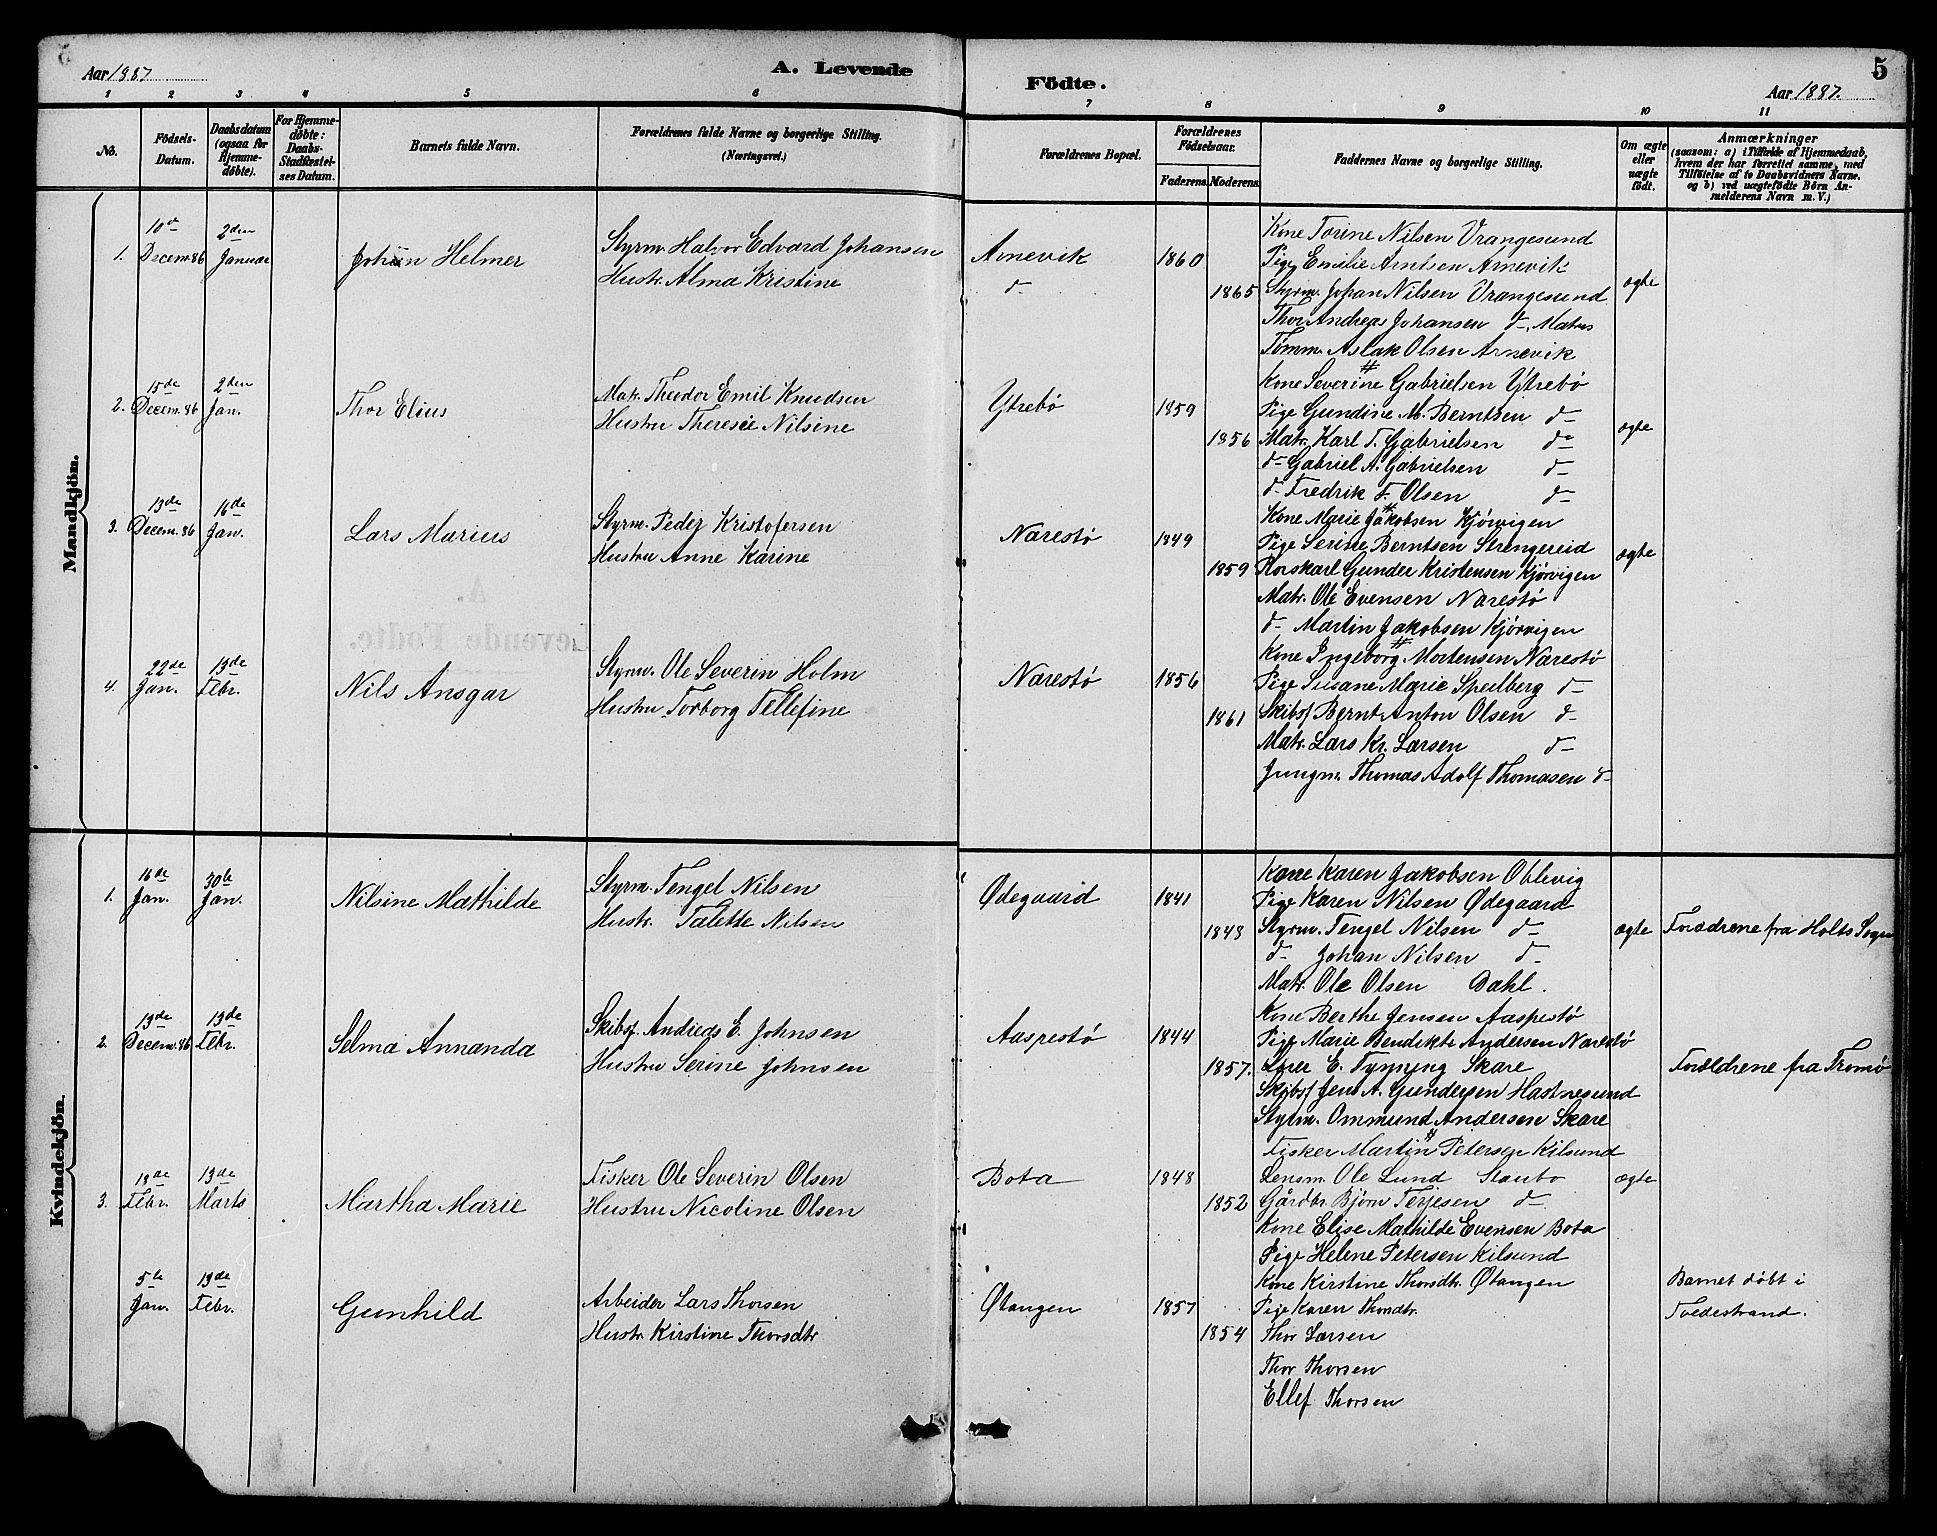 Aar 1887
A. Levende
Födte.
Aar 1887.
5
1 2 3 4 5 6 7 8 9 10 11
No.
Födsels-Datum.
Daabsdatum (ogsaa for Hjemme-döbte).
For Hjemme-döbte: Daabs-Stadfæstel-ses Datum.
Barnets fulde Navn.
Forældrenes fulde Navne og borgerlige Stilling. (Næringsvei.)
Forældrenes Bopæl.
Forældrenes Födselsaar.
Faderens. Moderens.
Faddernes Navne og borgerlige Stilling.
Om ægte eller uægte födt.
Anmærkninger
(saasom: a) i Tilfælde af Hjemmedaab, hvem der har forrettet samme, med Tilföielse af to Daabsvidners Navne. og b) ved uægtefödte Börn An-melderens Navn m. V.)
Mandkjön.
1. 10de Decem. 86 2den Januar
Johan Helmer
Styrm. Halvor Edvard Johansen
Hustr. Alma Kristine
Arnevik
d-
1860
1865
Kone Torine Nilsen Vrangesund
Pige Emilie Arntsen Arnevik
Styrm. Johan Nilsen Vrangesund
Thor Andreas Johansen d-, Matros
Tømm. Aslak Olsen Arnevik
ægte
2. 15de Decem. 86 2den Jan.
Thor Elius
Matr. Theodor Emil Knudsen
Hustru Theresie Nilsine
Ytrebø
1859
1856
Kone Severine Gabrielsen Ytrebø
Pige Gundine M. Berntsen d-
Matr. Karl T. Gabrielsen d-
d- Gabriel A. Gabrielsen d-
d- Fredrik F. Olsen d-
ægte
3. 13de Decem. 86 16de Jan.
Lars Marius
Styrm. Peder Kristofersen
Hustru Anne Karine
Narestø
1849
1859
Kone Marie Jakobsen Kjørvigen
Pige Serine Berntsen Strengereid
Rorskarl Gunder Kristensen Kjørvigen
Matr. Ole Evensen Narestø
d- Martin Jakobsen Kjørvigen
ægte
4. 22de Jan. 13de Febr.
Nils Ansgar
Styrm. Ole Severin Holm
Hustru Torborg Tellefine
Narestø
1856
1861
Kone Ingeborg Mortensen Narestø
Pige Susane Marie Speilberg d-
Skibsf Bernt Anton Olsen d-
Matr. Lars Kr. Larsen d-
Jungm. Thomas Adolf Thomasen d-
Kvindekjön.
1. 16de Jan. 30te Jan.
Nilsine Mathilde
Styrm. Tengel Nilsen
Hustr. Talette Nilsen
Ødegaard
1841
1843
Kone Karen Jakobsen Oblevig
Pige Karen Nilsen Ødegaard
Styrm. Tengel Nilsen d-
d- Johan Nilsen d-
Matr. Ole Olsen Dahl.
ægte
Forældrene fra Holts Sogn
2. 13de Decem. 86 13de Febr.
Selma Annanda
Skibsf. Andreas E. Johnsen
Hustru Serine Johnsen
Aaspestø
1844
1857.
Kone Berthe Jensen Aaspestø
Pige Marie Bendikte Andersen Narestø
E. Skare
Skibsf Jens A. Gundersen Hastnesund
Styrm. Ommund Andersen Skare
Forældrene fra Tromø
3. 18de Febr. 13de Marts
Martha Marie
Fisker Ole Severin Olsen
Hustru Nicoline Olsen
Bota
1848
1852
Fisker Martin Petersen Kilsund
Lensm. Ole Lund Staubo
Gårdbr. Bjørn Terjesen d-
Kone Elise Mathilde Evensen Bota
Pige Helene Petersen Kilsund
ægte
5te Jan. 13de Febr.
Gunhild
Arbeider Lars Thorsen
Hustr. Kirstine Thorsdtr
Øtangen
1857
1854
Kone Kirstine Thorsdtr. Øtangen
Pige Karen Thorsdtr.
Thor Larsen
Thor Thorsen
Ellef Thorsen
Barnet döbt i
Tvedestrand.
A.
Levende Födte.